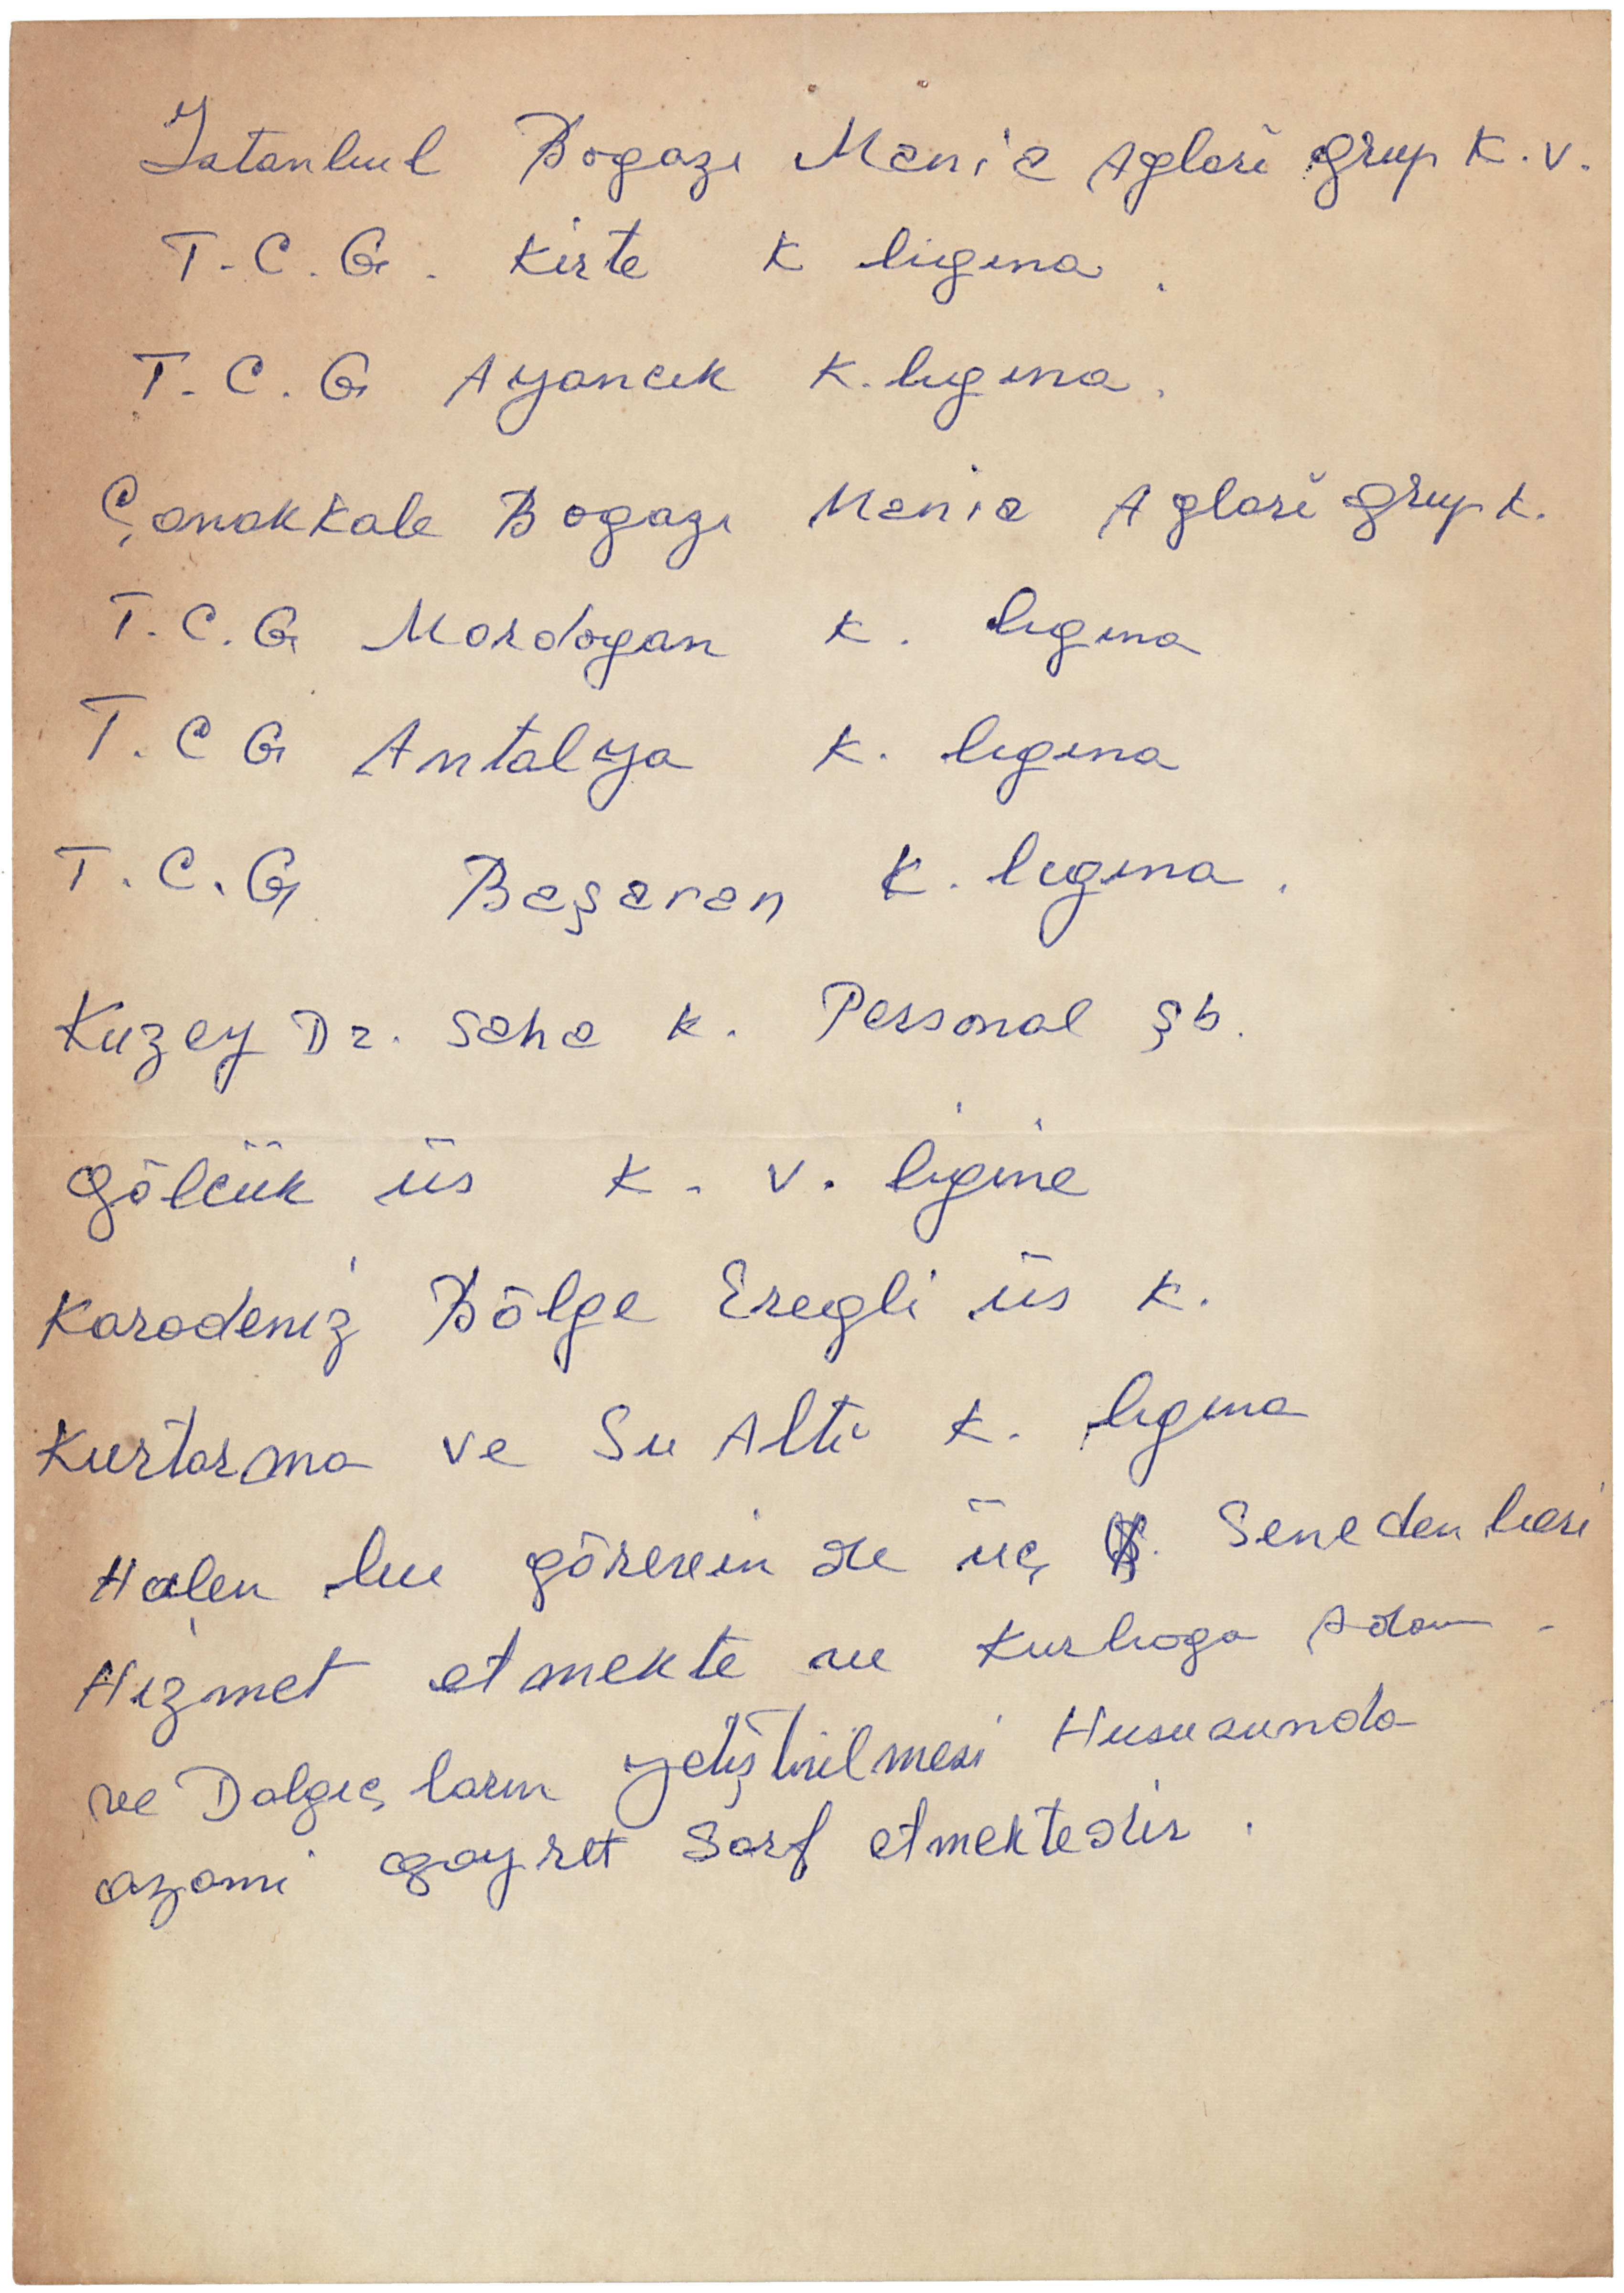 İstanbul Bogazı Mania Agları grup K.V.
T.C.G. Kirte K lıgına.
T.C.G Ayancık K.lıgına.
Çanakkale Bogazı Mania Agları grup K.
T.C.G Mordogan K. lıgına
T.C G Antalya K. lıgına
T.C.G Başaran K. lıgına.
Kuzey Dz. Saha K. Personal şb.
gölcük üs K. V. ligine
Karadeniz Bölge Eregli üs K.
Kurtarma ve Su Altı K. lıgına
Halen bu görevin de üç Seneden beri
Hizmet etmekte ve Kurbaga Adam
ve Dalgıç ların yetiştirilmesi Hususunda
azami gayret Sarf etmektedir.